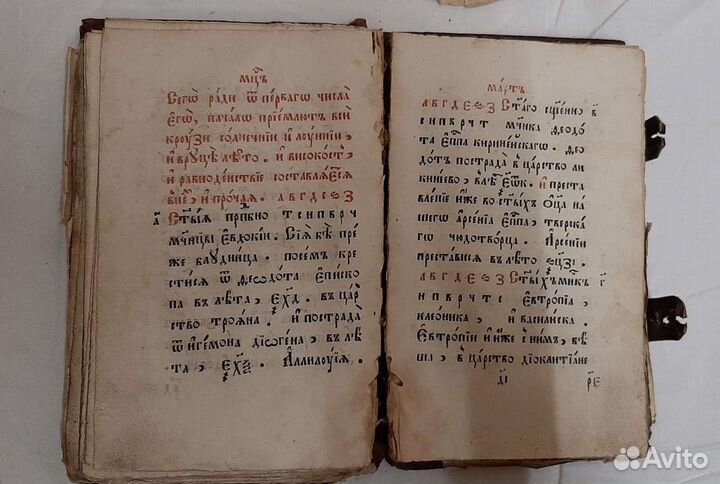 мц҃ъ
Сегѡ̀ ради ѿ первагѡ числа̀
егѡ̀, начало прїемлютъ вси
кроузи солнечнїи и лоуннїи,
и вруцѣ лѣто. и високостъ,
и равноденствїе составляется
и прочая. а в г д е ѕ з
а҃ Ст҃ыя прпⷣбно т с н п в р ч
мч҃ницы Евдокїи. Сїя бѣ пре
же блудница. посем крс
тися ѿ Ѳеѡдота Епископ
па в лѣта, в цар
ство трояна. и пострада
ѿ игемона дїогена, в лѣ
та, Аллилоуїя.
мартъ
а в г д е ѕ з Ст҃аго сщ҃енно в҃
с н п в р ч т мч҃ника Ѳеодо
та Еп҃па киринейскаго. Ѳео
дотъ пострада в царство ли
кинїево, в лѣ И преста
вленїе иже во ст҃ыхъ ѻц҃а на
шего Арсенїя Еп҃па, тверска
гѡ чюдотворца. Арсенїи
преставися в лѣто ѕц҃з.
а в г д е ѕ з Ст҃ыхъ мч҃ник г҃
н п в р ч т с Евтропїа,
клеоника, и василиска.
Евтропїи и иже с ним, бѣ
ша, в царство дїоклитїане
д҃і
р҃е
Avito